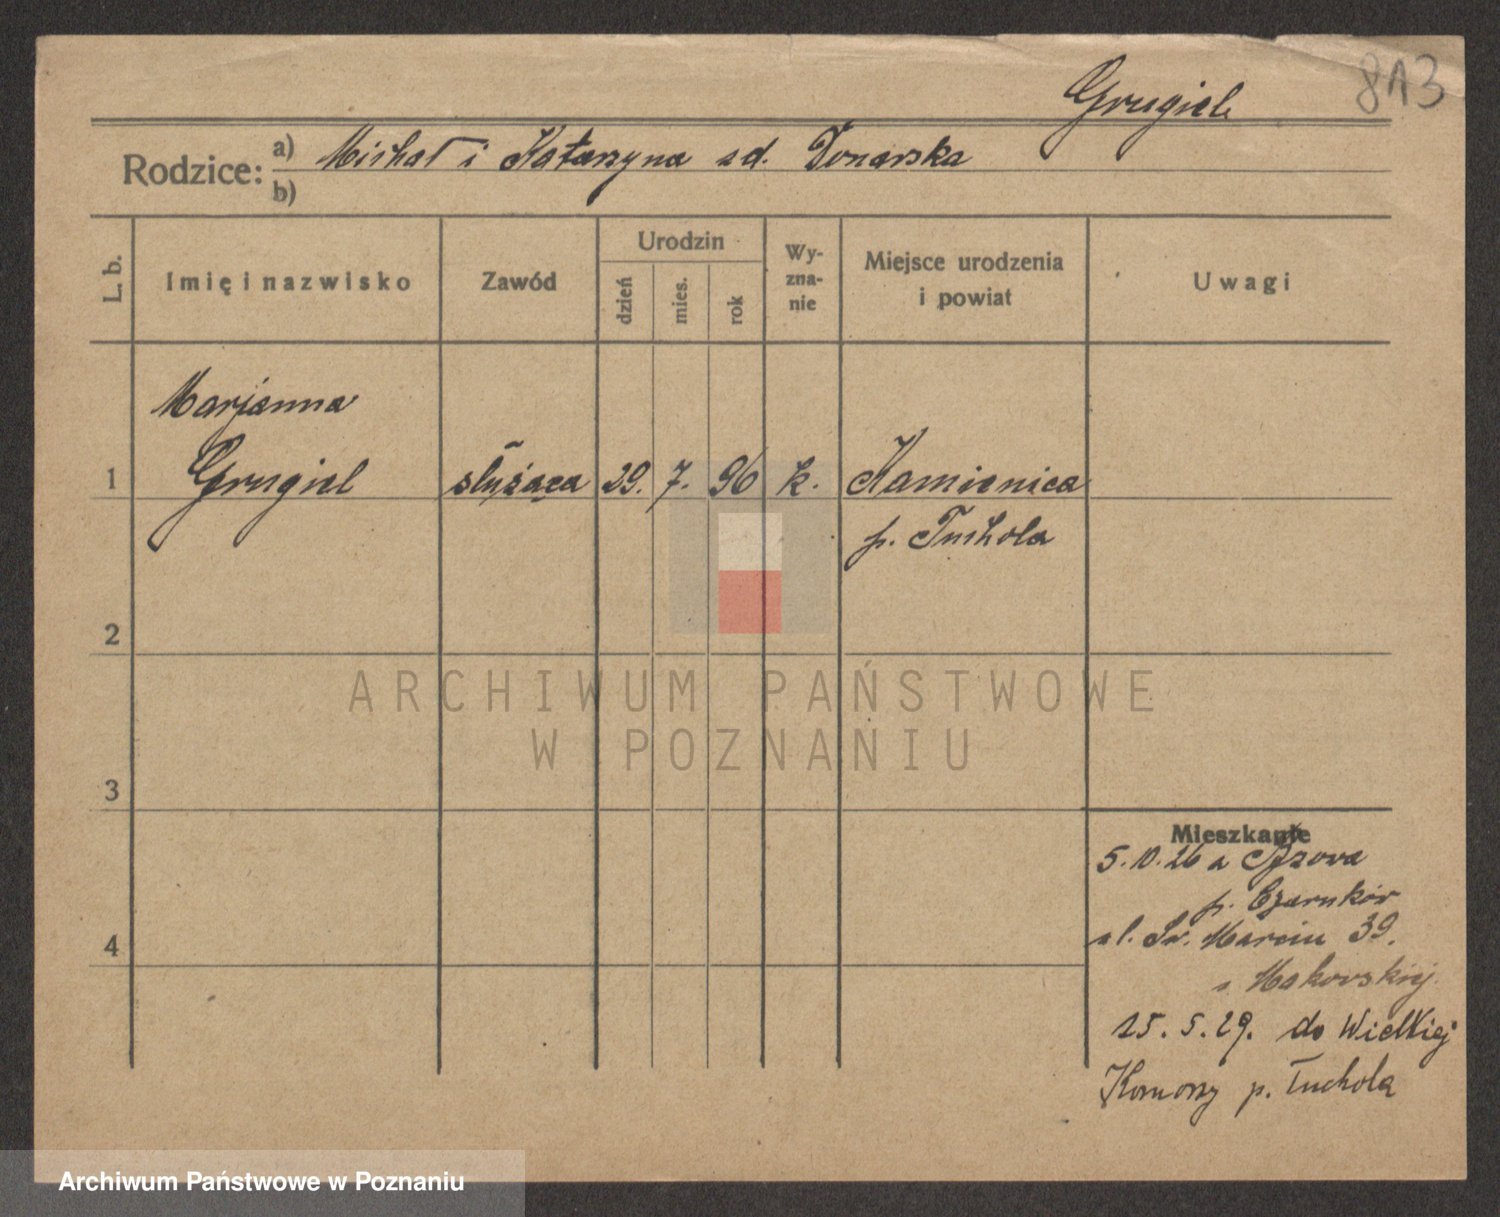 813
Grugiel
Rodzice: a) Michał i Katarzyna zd. Donarska
b)
L. b. Imię i nazwisko Zawód Urodzin dzień mies. rok Wy-zna-nie Miejsce urodzenia i powiat Uwagi
Marjanna
1 Grugiel służąca 29. 7. 96 k. Kamienica
p. Tuchola
2
ARCHIWUM PAŃSTWOWE
W POZNANIU
3
Mieszkanie
5.10.26 z
p. Czarnków
ul. Św. Marcin 39.
u Makowskiej
4
15.5.29. do Wielkiej
Komorzy p. Tuchola
Archiwum Państwowe w Poznaniu